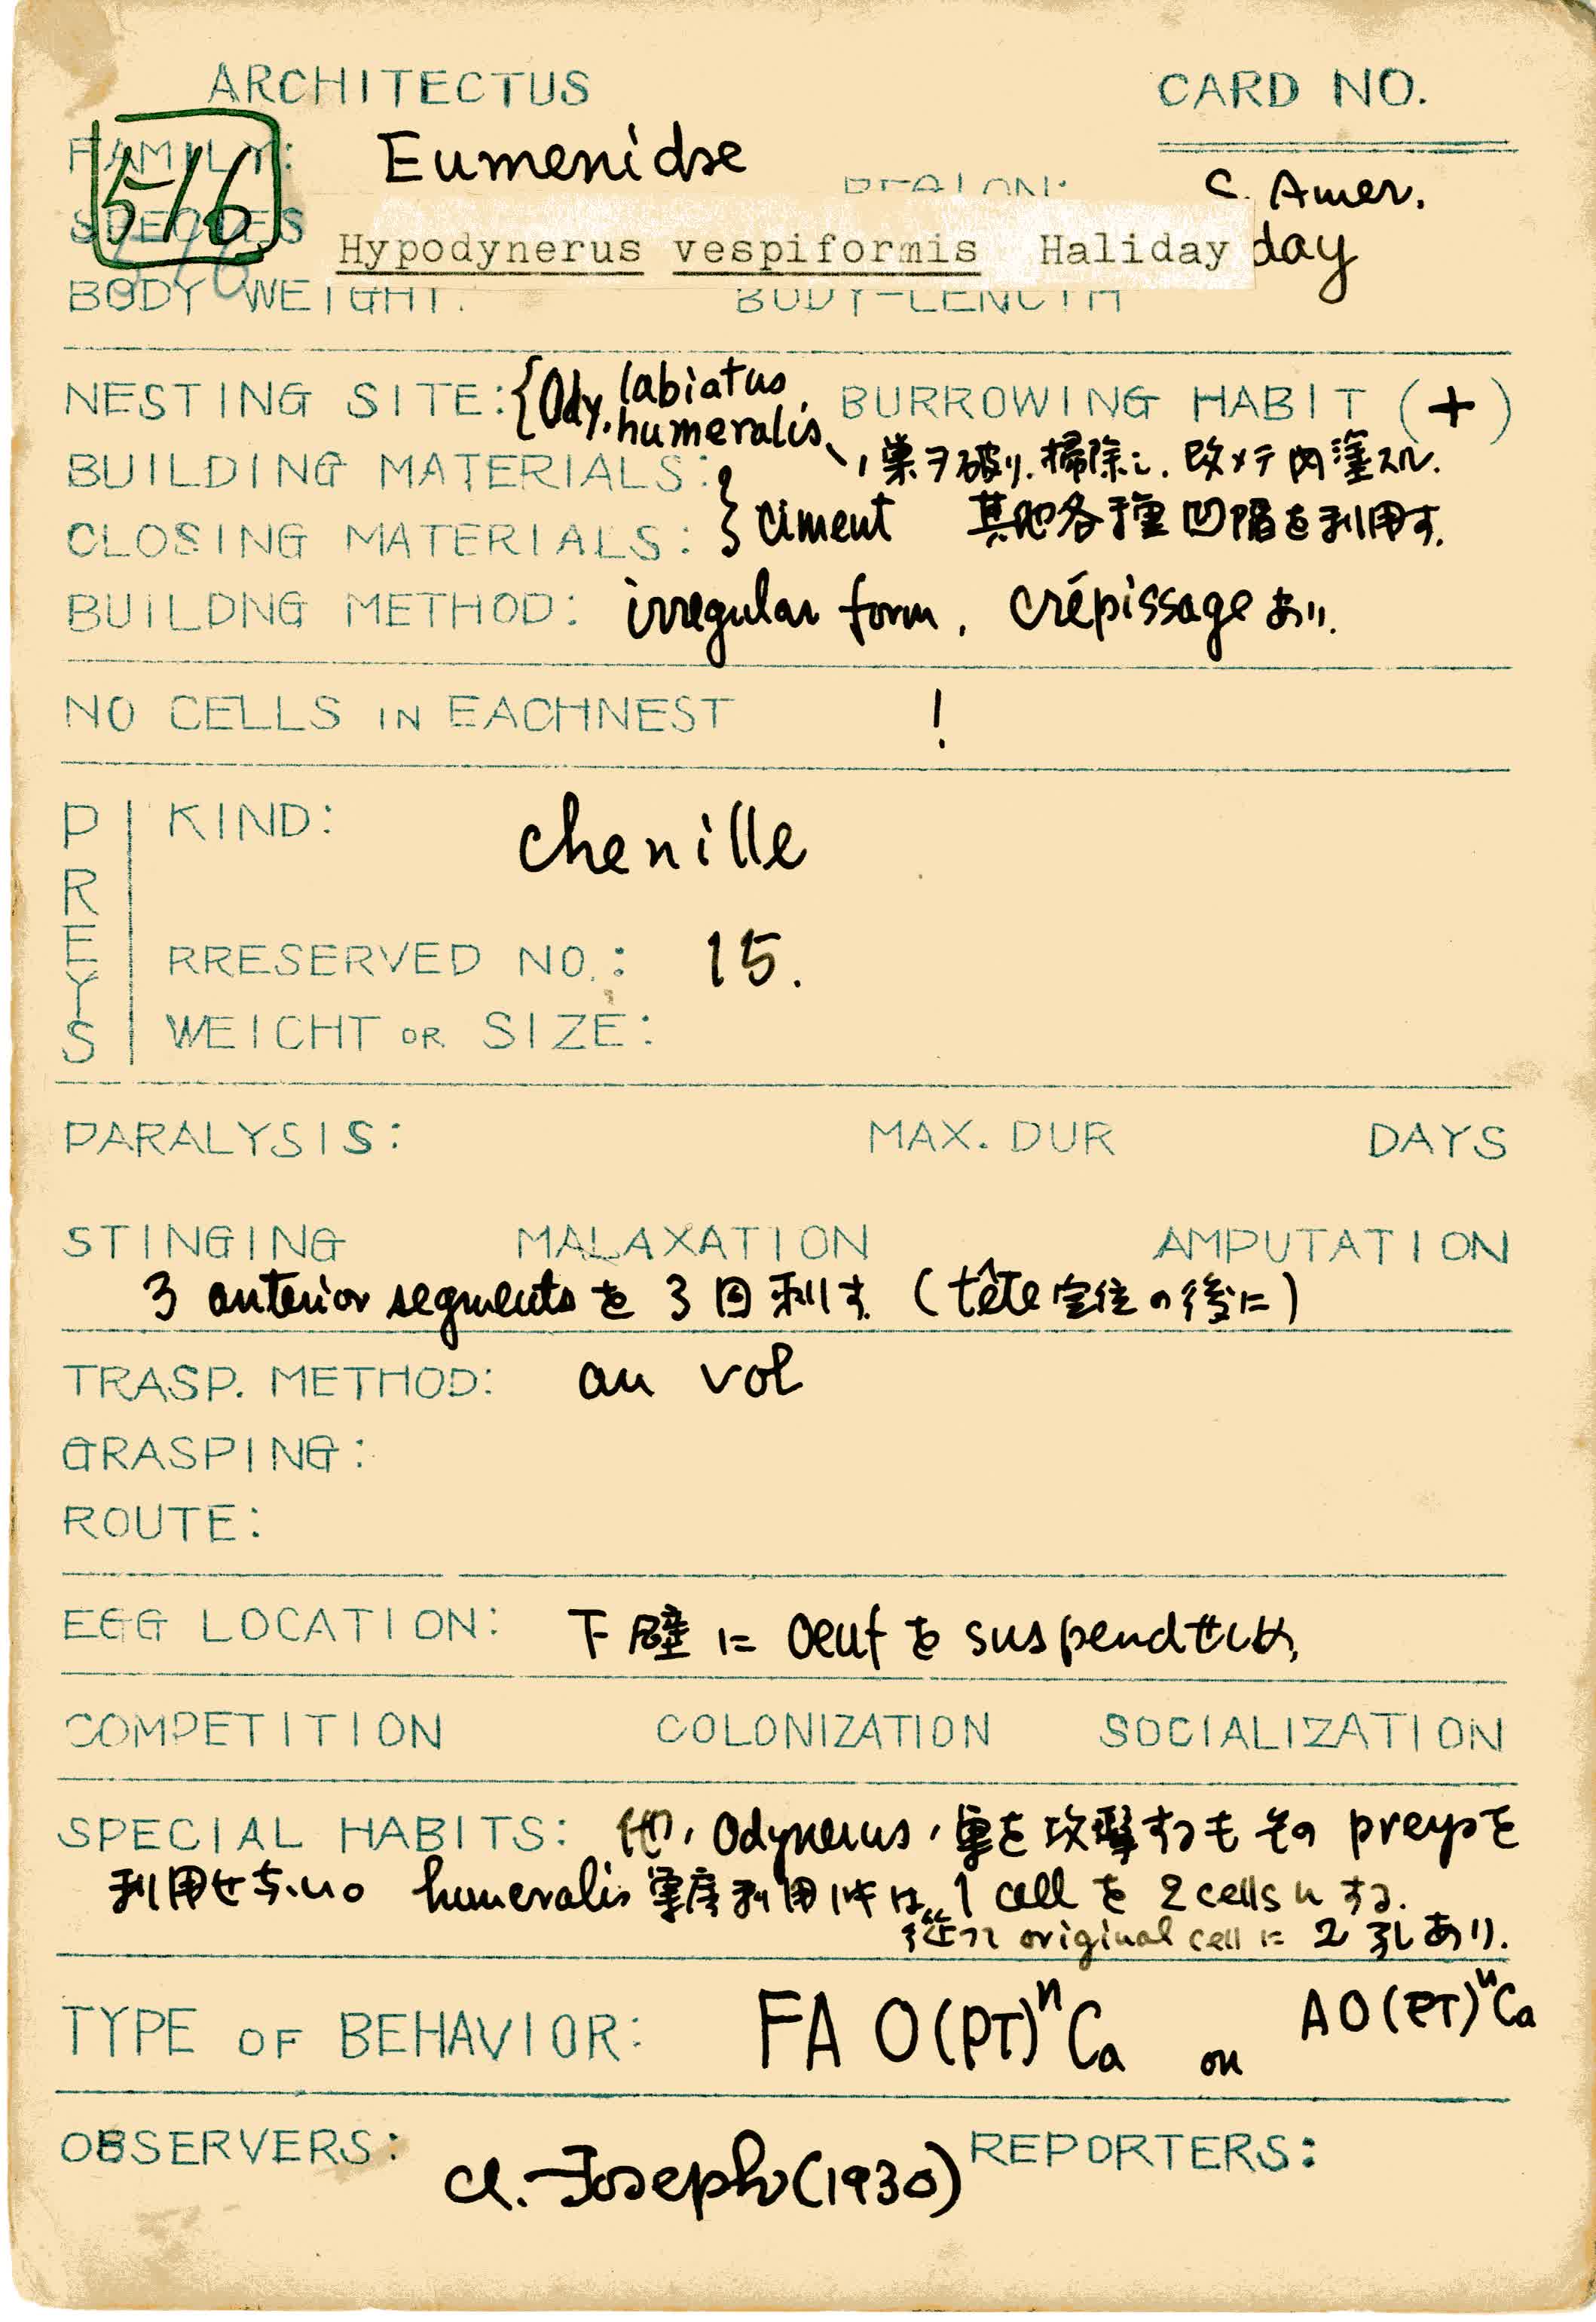 ARCHITECTUS CARD NO.
FAMILY: Eumenidae REGION: S. Amer.
516
SPECIES Hypodynerus vespiformis Haliday day
BODY WEIGHT. BODY-LENGTH
NESTING SITE: { Ody. labiatus, humeralis, BURROWING HABIT (+)
ノ巣ヲ破リ、掃除シ、改メテ内塗スル.
BUILDING MATERIALS:
CLOSING MATERIALS: } ciment 其他各種凹陥を利用す.
BUILDNG METHOD: irregular form, crépissage あり.
NO CELLS IN EACHNEST !
PREYS
KIND: chenille
RRESERVED NO.: 15.
WEICHT OR SIZE:
PARALYSIS: MAX. DUR DAYS
STINGING MALAXATION AMPUTATION
3 anterior segments を 3回刺す (tête 定位の後に)
TRASP. METHOD: au vol
GRASPING:
ROUTE:
EGG LOCATION: 下壁に oeuf を suspend せしめ,
COMPETITION COLONIZATION SOCIALIZATION
SPECIAL HABITS: 他ノ Odynerus ノ巣を攻撃するもその preys を
利用せない。 humeralis 巣房利用ノ時は 1 cell を 2 cells にする.
従つて original cell に 2孔あり.
TYPE OF BEHAVIOR: FA O(PT)ⁿCa ou AO(PT)ⁿCa
OBSERVERS: Cl. Joseph (1930) REPORTERS: